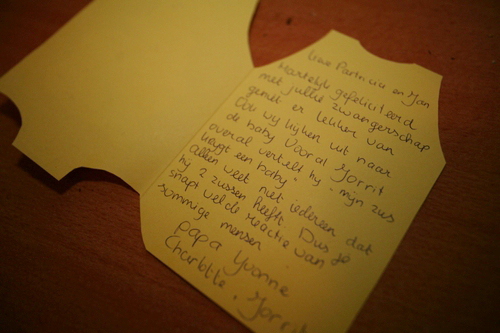 Lieve Patricia en Jan
Hartelijk gefeliciteerd
met jullie zwangerschap
geniet er lekker van
Ook wij kijken uit naar
de baby Vooral Jorrit
overal vertelt hij "mijn zus
krijgt een baby"
Alleen weet niet iedereen dat
hij 2 zussen heeft. Dus je
snapt wel de reactie van
sommige mensen
Papa Yvonne
Charlotte, Jorrit